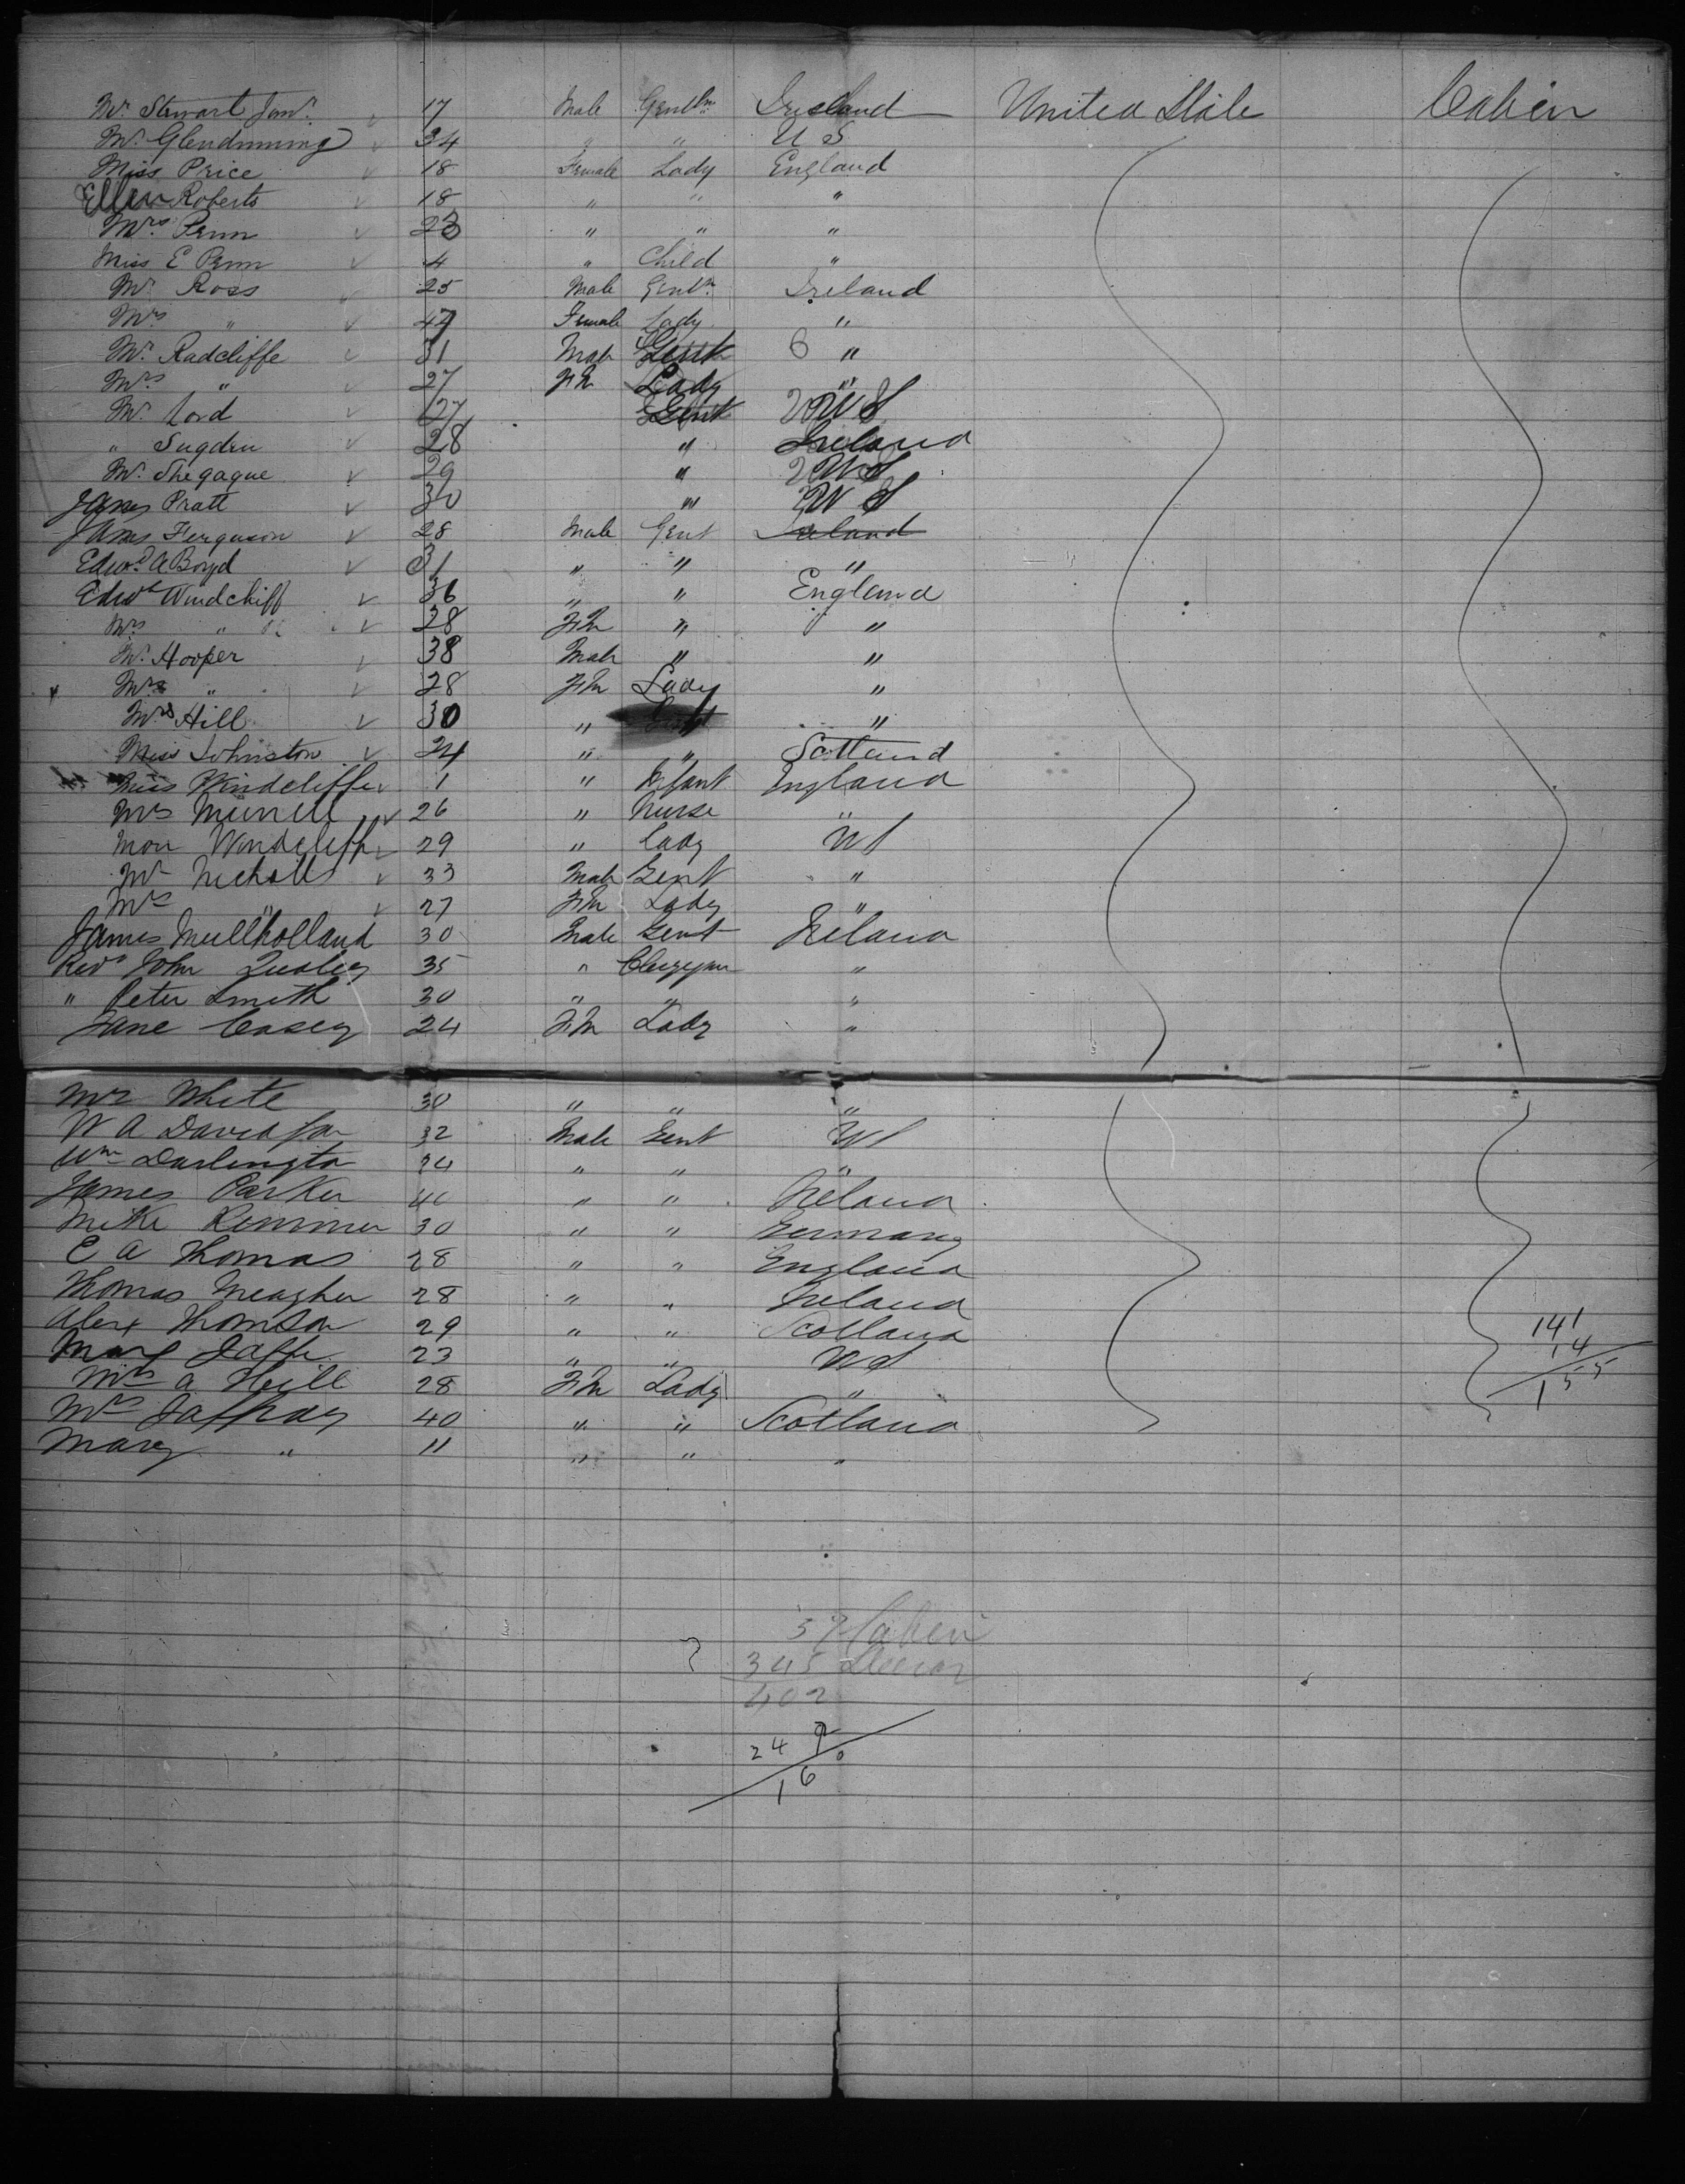 Mr. Stewart Junr. 17 Male Gentln Ireland United State Cabin
Mr. Glendinning 34 " " U S
Miss Price 18 Female Lady England
Ellen Roberts 18 " " "
Mrs. Penn 23 " " "
Miss E Penn 4 " Child "
Mr Ross 25 Male Gentn Ireland
Mrs " 47 Female Lady "
Mr. Radcliffe 31 Male Gent 6 "
Mrs " 27 Fm Lady "
Mr. Lord 27 Gent U S
" Sugden 28 " Ireland
Mr. Shegague 29 " U S
James Pratt 30 " U S
James Ferguson 28 Male Gent Ireland
Edwd. A Boyd 31 " " "
Edwd Windchiff 36 " " England
Mrs " 28 Fm " "
Mr. Hooper 38 Male " "
Mrs " 28 Fm Lady "
Mrs Hill 30 " "
Miss Johnston 24 " " Scotland
Miss Windcliffe 1 " Infant England
Mrs Murrell 26 " Nurse "
Windcliffe 29 " Lady U S
Mr Nicholls 33 Male Gent "
Mrs " 27 Fm Lady "
James Mullholland 30 Male Gent Ireland
Revd John 35 " Clergyman "
" Peter Smith 30 " " "
Jane Casey 24 Fm Lady "
Mrs White 30 " " "
W A Davidson 32 Male Gent U S
Wm Darlington 24 " " "
James Parker 40 " " Ireland
Mike Rimmer 30 " " Germany
E A Thomas 28 " " England
Thomas Meagher 28 " " Ireland
Alex Thomson 29 " " Scotland 141
14
Jaffe 23 " " U S 155
Mrs A Hill 28 Fm Lady "
Mrs Jaffray 40 " " Scotland
Mary " 11 " " "
57 Cabin
345 Steerag
402
24
16